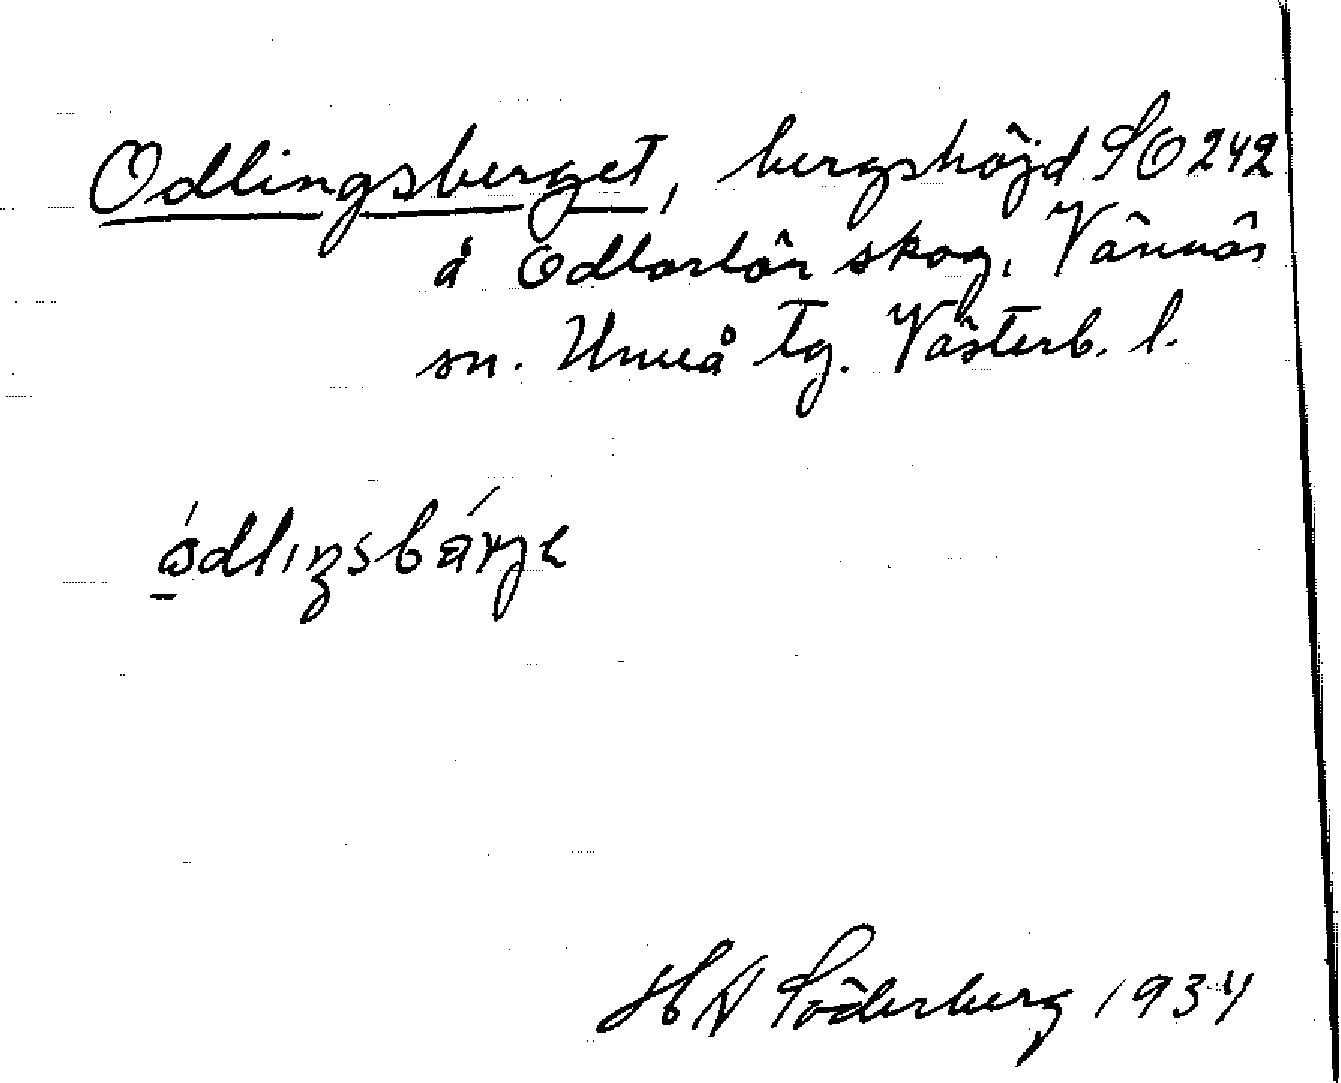 Odlingsberget, bergshöjd SO 242
å Odlarlär skog, Vännäs
sn. Umeå tg. Västerb. l.
ödlıŋsbärje
H A Söderberg 1934